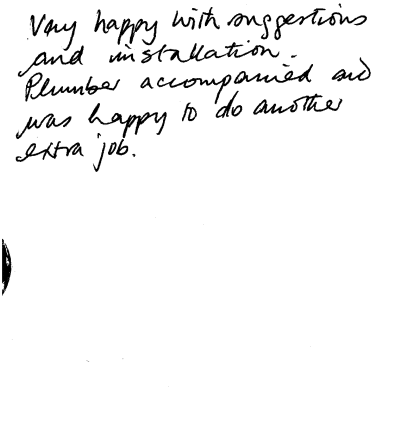 Very happy with suggestions
and installation.
Plumber accompanied and
was happy to do another
extra job.